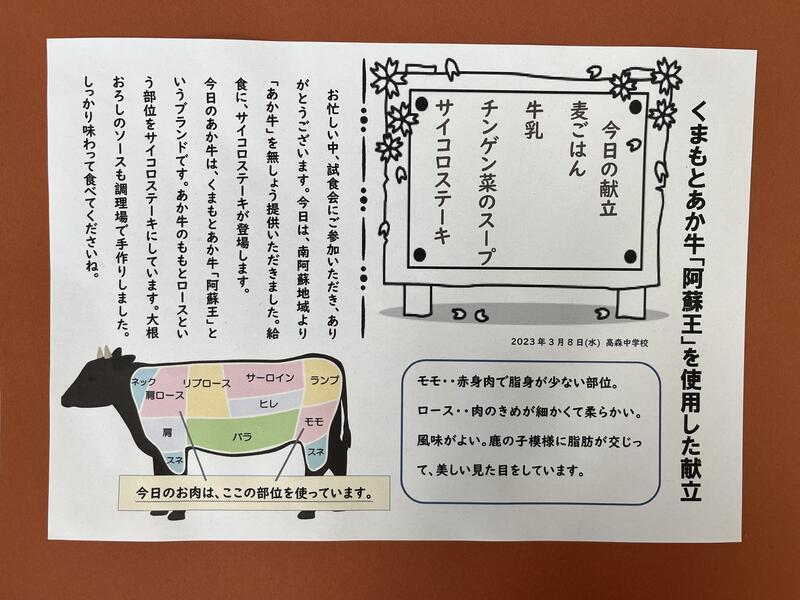 くまもとあか牛「阿蘇王」を使用した献立
今日の献立
麦ごはん
牛乳
チンゲン菜のスープ
サイコロステーキ
2023年3月8日(水) 高森中学校
お忙しい中、試食会にご参加いただき、あり
がとうございます。今日は、南阿蘇地域より
「あか牛」を無しょう提供いただきました。給
食に、サイコロステーキが登場します。
今日のあか牛は、くまもとあか牛「阿蘇王」と
いうブランドです。あか牛のももとロースとい
う部位をサイコロステーキにしています。大根
おろしのソースも調理場で手作りしました。
しっかり味わって食べてくださいね。
モモ・・赤身肉で脂身が少ない部位。
ロース・・肉のきめが細かくて柔らかい。
風味がよい。鹿の子模様に脂肪が交じっ
て、美しい見た目をしています。
ネック
肩ロース
リブロース
サーロイン
ランプ
ヒレ
肩
バラ
モモ
スネ
スネ
今日のお肉は、ここの部位を使っています。